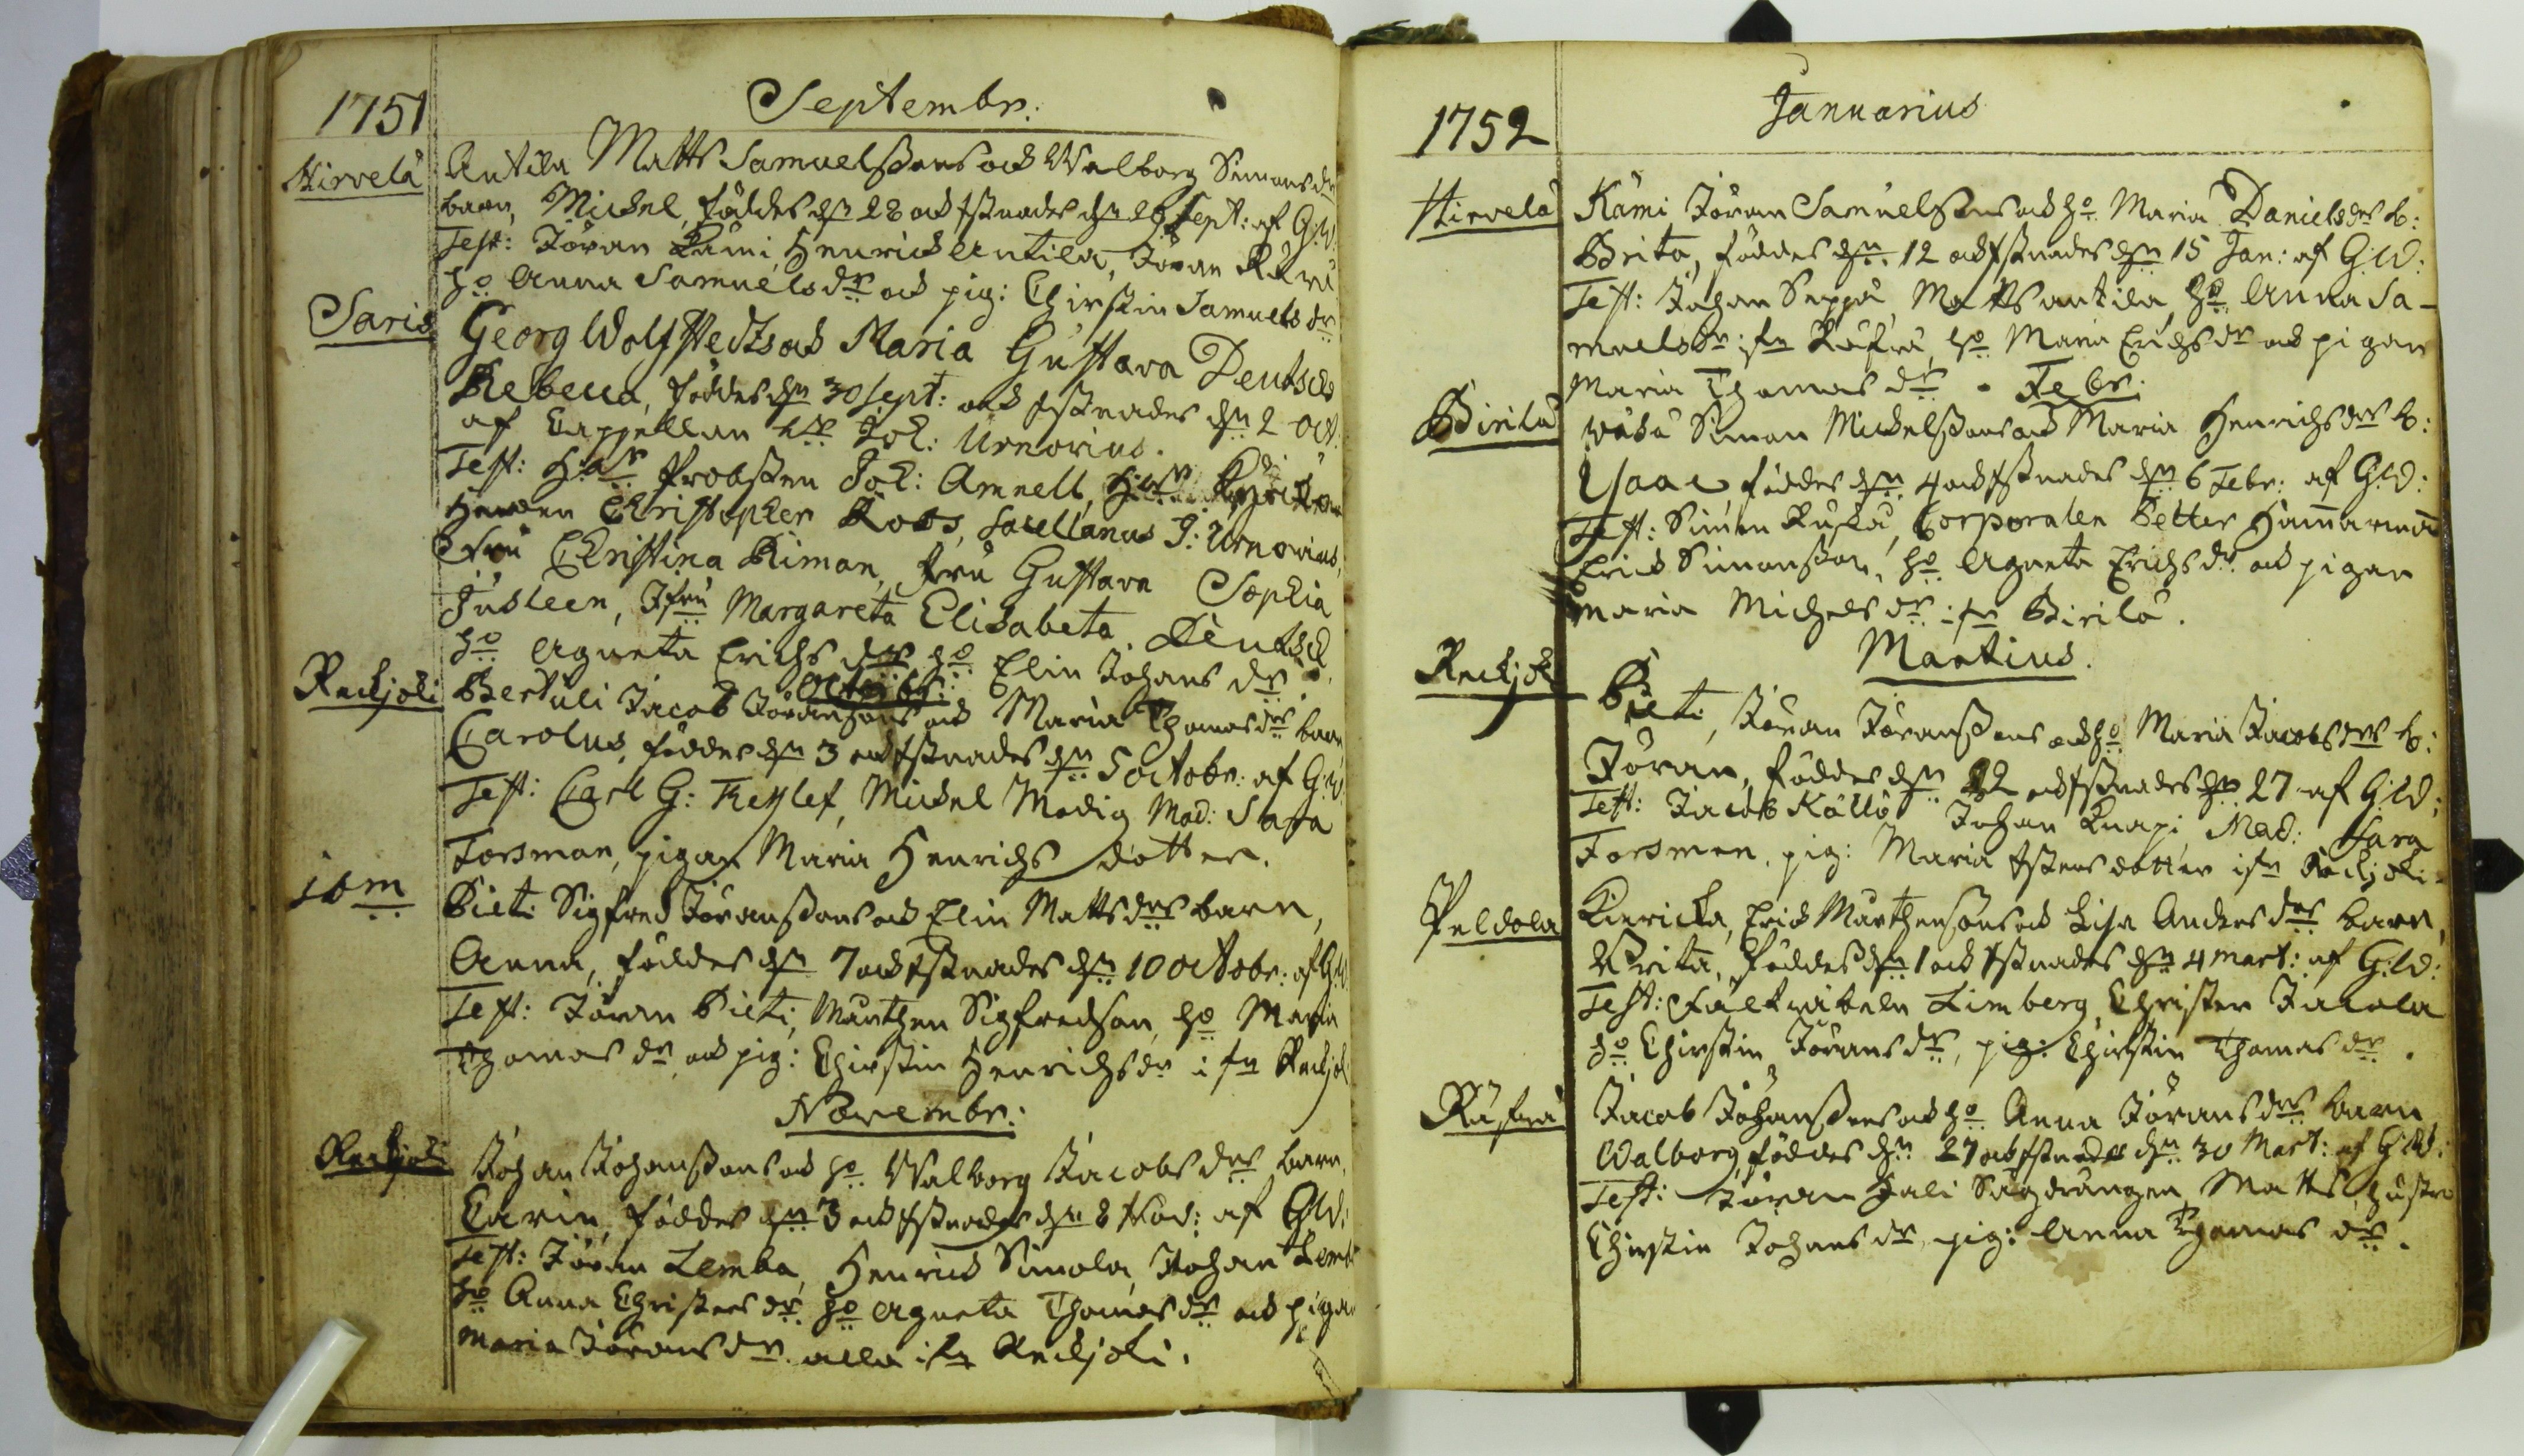 1751
Septembr:
Hirvelä
Antila Matts Samuelssons ock Walborg Simonsdrs
barn, Mickel, föddes d:n 28 ock kstnades d:n 29 Sept: af G:W:
Test: Jöran Kämi, Henrick Antila, Jöran
h:o Anna Samuelsdr ock pig: Chirstin Samuelsdr
Saris
Georg Wolfstedts ock Maria Gustava Deutschs
Rebecca, föddes d:n 30 Sept: ock kstnades d:n 2 Oct:
af Cappellan h:r Joh: Urnovius.
Test: H:r Probsten Joh: Amnell,
Herren Christopher Robs, Sacellanus J: Urnovius,
Fru Christina Riman, fru Gustava Sophia
Jusleen, Jfru Margareta Elisabeta Deutsch,
h:o Agneta Erichsdr, h:o Elin Johansdr.
Octobr:
Reckjoki
Bertuli Jacob Jöranssons ock Maria Thomasdrs barn
Carolus, föddes d:n 3 ock kstnades d:n 5 Octobr: af G:W:
Test: Carl G: Theslef, Mickel Modig, Mad: Sara
Forsman, pigan Maria Henrichs dotter.
ibm
Pieti Sigfred Jöranssons ock Elin Mattsdrs barn,
Anna, föddes d:n 7 ock kstnades d:n 10 Octobr: af G:W:
Test: Jöran Pieti, Mårthen Sigfredson, h:o Maria
Thomasdr, ock pig: Chirstin Henrichsdr ifn Reckjoki
Novembr:
Reckjoki
Johan Johanssons ock h:o Walborg Jacobsdrs barn,
Carin, föddes d:n 3 ock kstnades d:n 8 Nov: af G:W:
Test: Jöran Lemba, Henrick Simola, Johan Lemba
h:o Anna Christersdr, h:o Agneta Thomasdr ock pigan
Maria Jöransdr alla ifn Reckjoki.
1752
Januarius
Hirvelä
Kämi Jöran Samuelssons ock h:o Maria Danielsdrs b:
Brita, föddes d:n 12 ock kstnades d:n 15 Jan: af G:W:
Test: Johan Seppä, Matts Antila, h:o Anna Sa-
muelsdr ifn Räfsä, h:o Maria Erichsdr ock pigan
Maria Thomasdr. Febr:
Pirilä
Simon Mickelssons ock Maria Henrichsdrs b:
Isaac, föddes d:n 4 ock kstnades d:n 6 Febr: af G:W:
Test: Simon Ruskä, Corporalen Petter Hammarman
Erick Simonsson, h:o Agneta Erichsdr ock pigan
Maria Michelsdr ifn Pirilä.
Martius.
Reckjoki
Pieti, Jöran Jöranssons ock h:o Maria Jacobsdrs b:
Jöran, föddes d:n 22 ock kstnades d:n 27 af G:W:
Test: Jacob Källö Johan Knapi, Mad: Sara
Forsman, pig: Maria dotter ifn Reckjoki.
Peldola
Kiericka, Erick Mårthensons ock Lisa Andersdrs barn,
Brita, föddes d:n 1 ock kstnades d:n 4 Mart: af G:W:
Test: Limberg, Christer Jacola
h:o Chirstin Jöransdr, pig: Chirstin Thomasdr.
Räfsä
Jacob Johanssons ock h:o Anna Jöransdrs barn
Walborg, föddes d:n 27 ock kstnades d:n 30 Mart: af G:W:
Test: Jöran Jali Sågdrängen, Matts hustru
Chirstin Johansdr, pig: Anna Thomasdr.